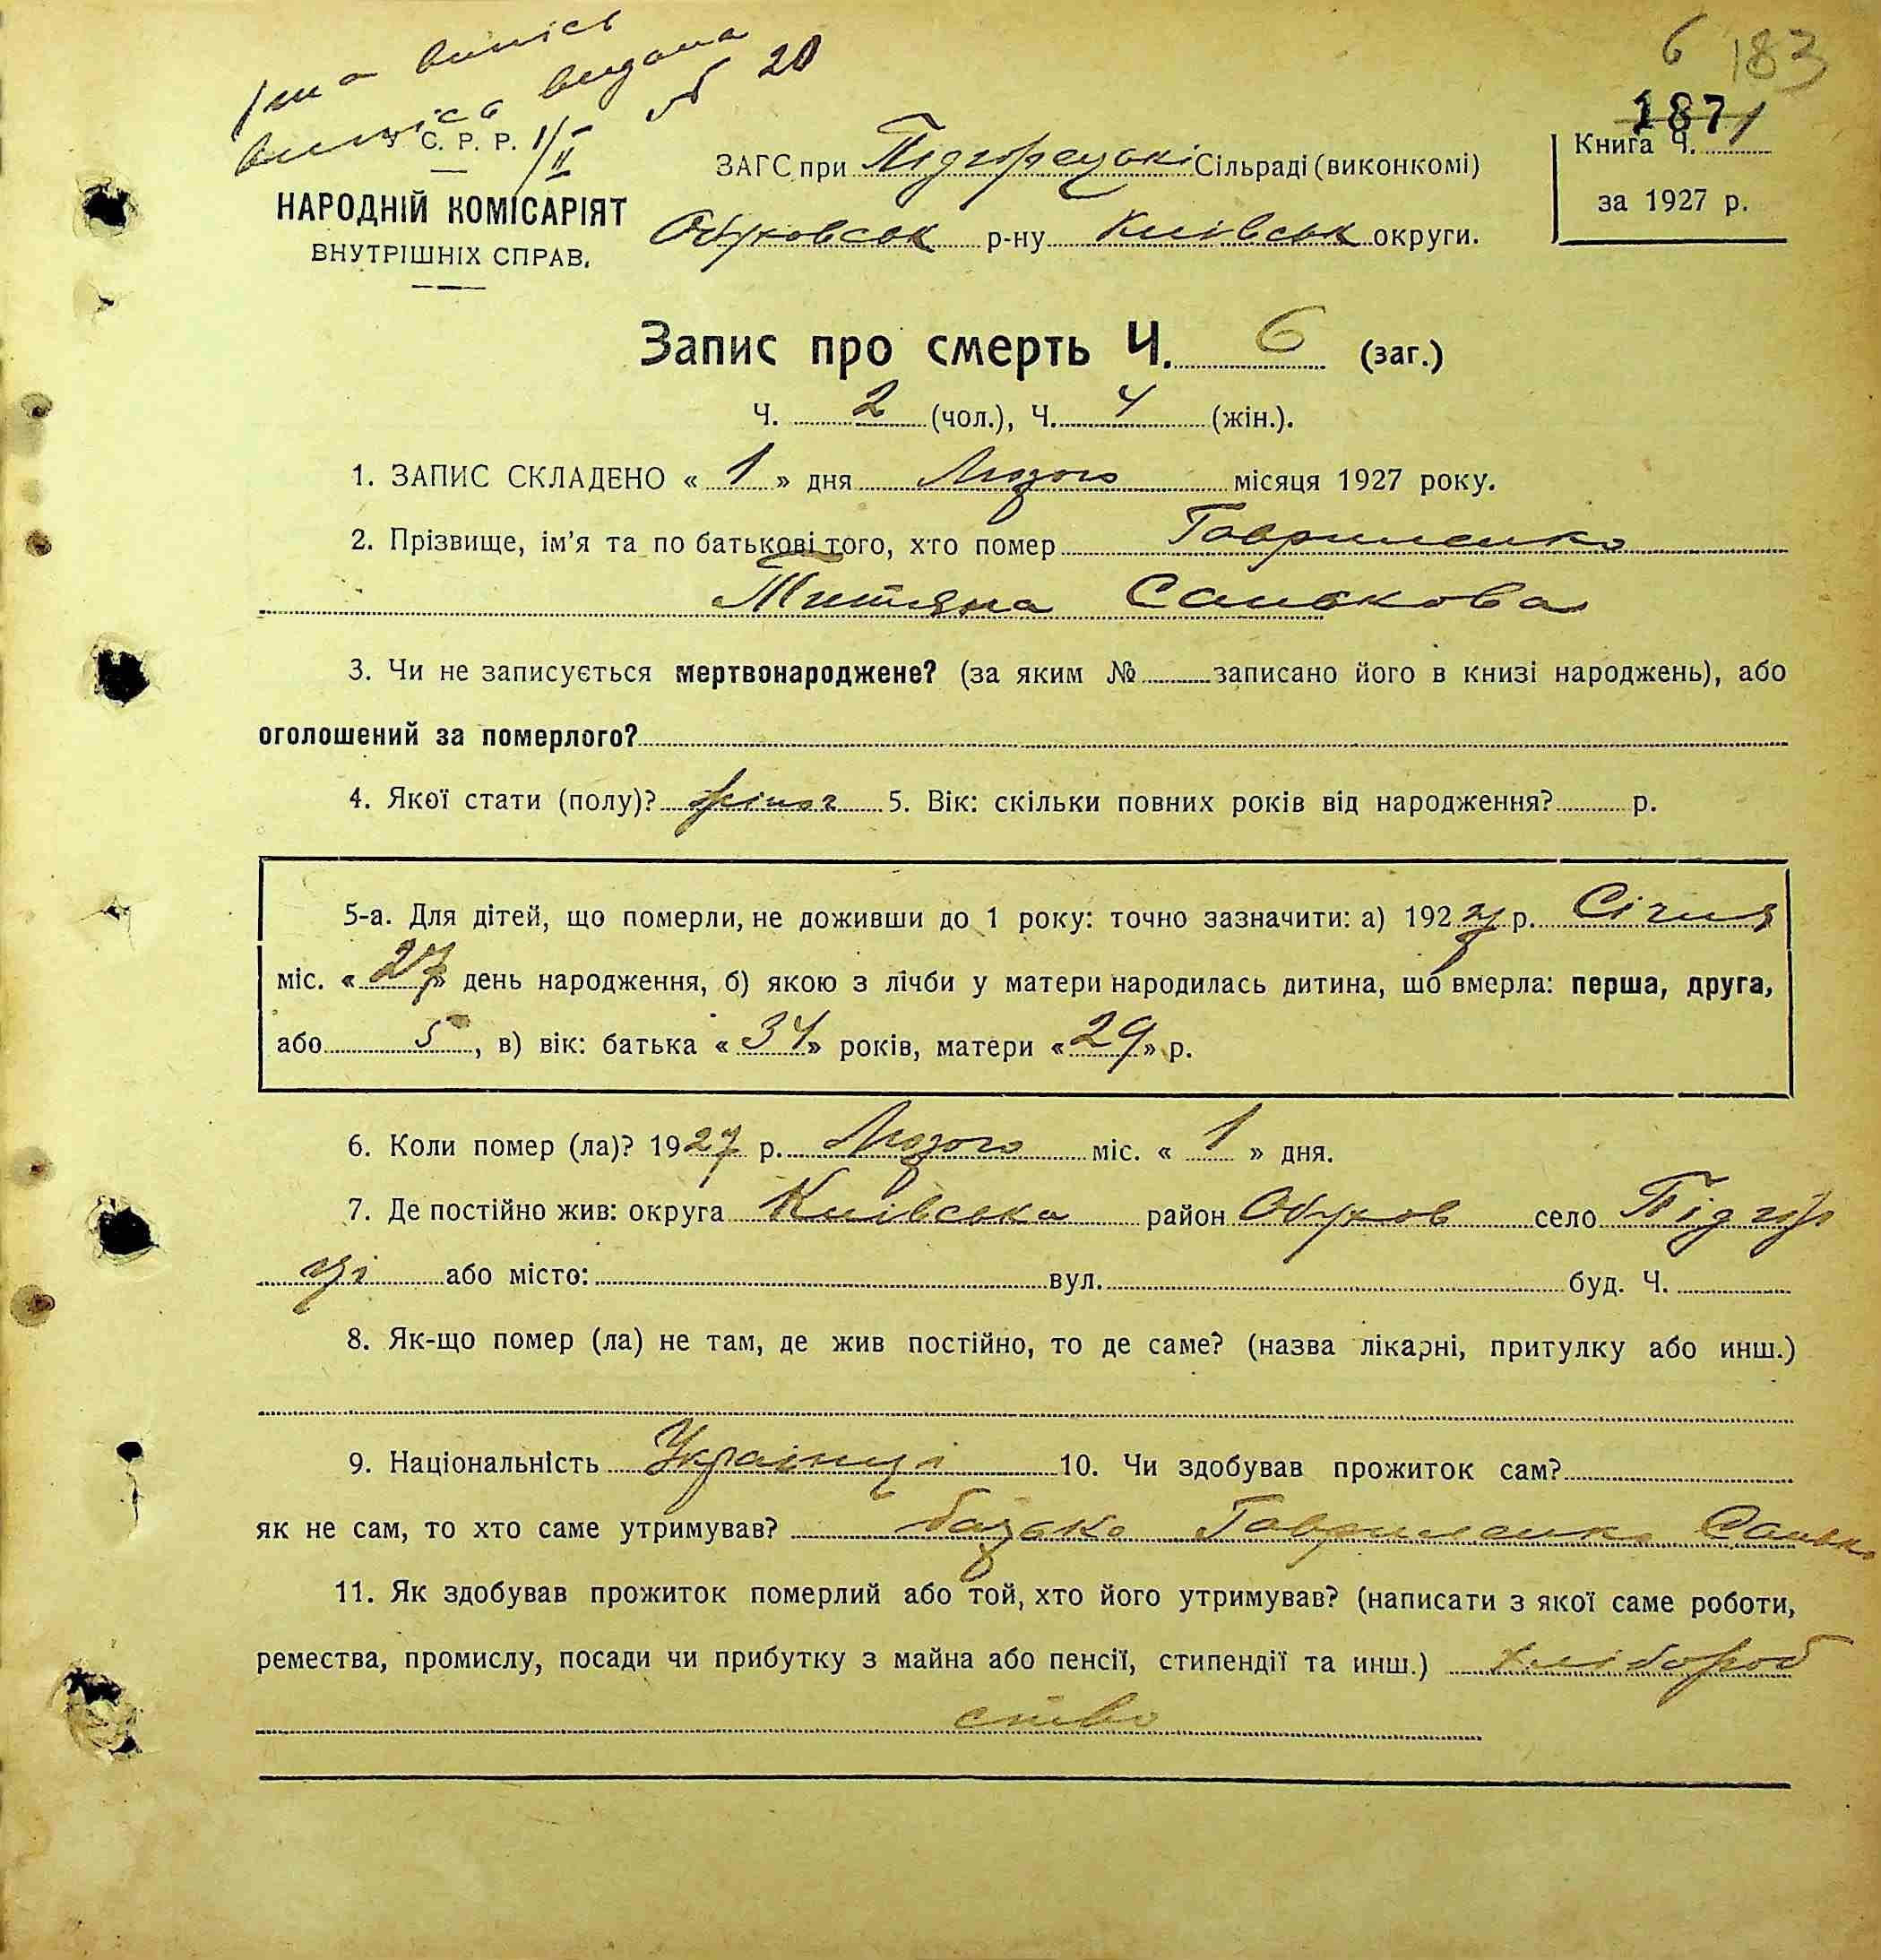 6 183
1871
виписка видана 20
У. С. Р. Р. 1/II
ЗАГС при Підгорецькі Сільраді (виконкомі)
Книга Ч. 1
НАРОДНІЙ КОМІСАРІЯТ
за 1927 р.
Обуховськ р-ну Київськ округи.
ВНУТРІШНІХ СПРАВ.
Запис про смерть Ч. 6 (заг.)
Ч. 2 (чол.), Ч. 4 (жін.).
1. ЗАПИС СКЛАДЕНО « 1 » дня Лютого місяця 1927 року.
2. Прізвище, ім'я та по батькові того, хто помер Гавриленко
Титяна Санькова
3. Чи не записується мертвонароджене? (за яким № записано його в книзі народжень), або
оголошений за померлого?
4. Якої стати (полу)? жіноч 5. Вік: скільки повних років від народження? р.
5-а. Для дітей, що померли, не доживши до 1 року: точно зазначити: а) 1927 р. Січня
міс. « 27 » день народження, б) якою з лічби у матери народилась дитина, що вмерла: перша, друга,
або 5, в) вік: батька « 34 » років, матери « 29 » р.
6. Коли помер (ла)? 1927 р. Лютого міс. « 1 » дня.
7. Де постійно жив: округа Київська район Обухов село Підгір
ці або місто: вул. буд. Ч.
8. Як-що помер (ла) не там, де жив постійно, то де саме? (назва лікарні, притулку або инш.)
9. Національність Українці 10. Чи здобував прожиток сам?
як не сам, то хто саме утримував? батько Гавриленко Санько
11. Як здобував прожиток померлий або той, хто його утримував? (написати з якої саме роботи,
ремества, промислу, посади чи прибутку з майна або пенсії, стипендії та инш.) хлібороб
ство